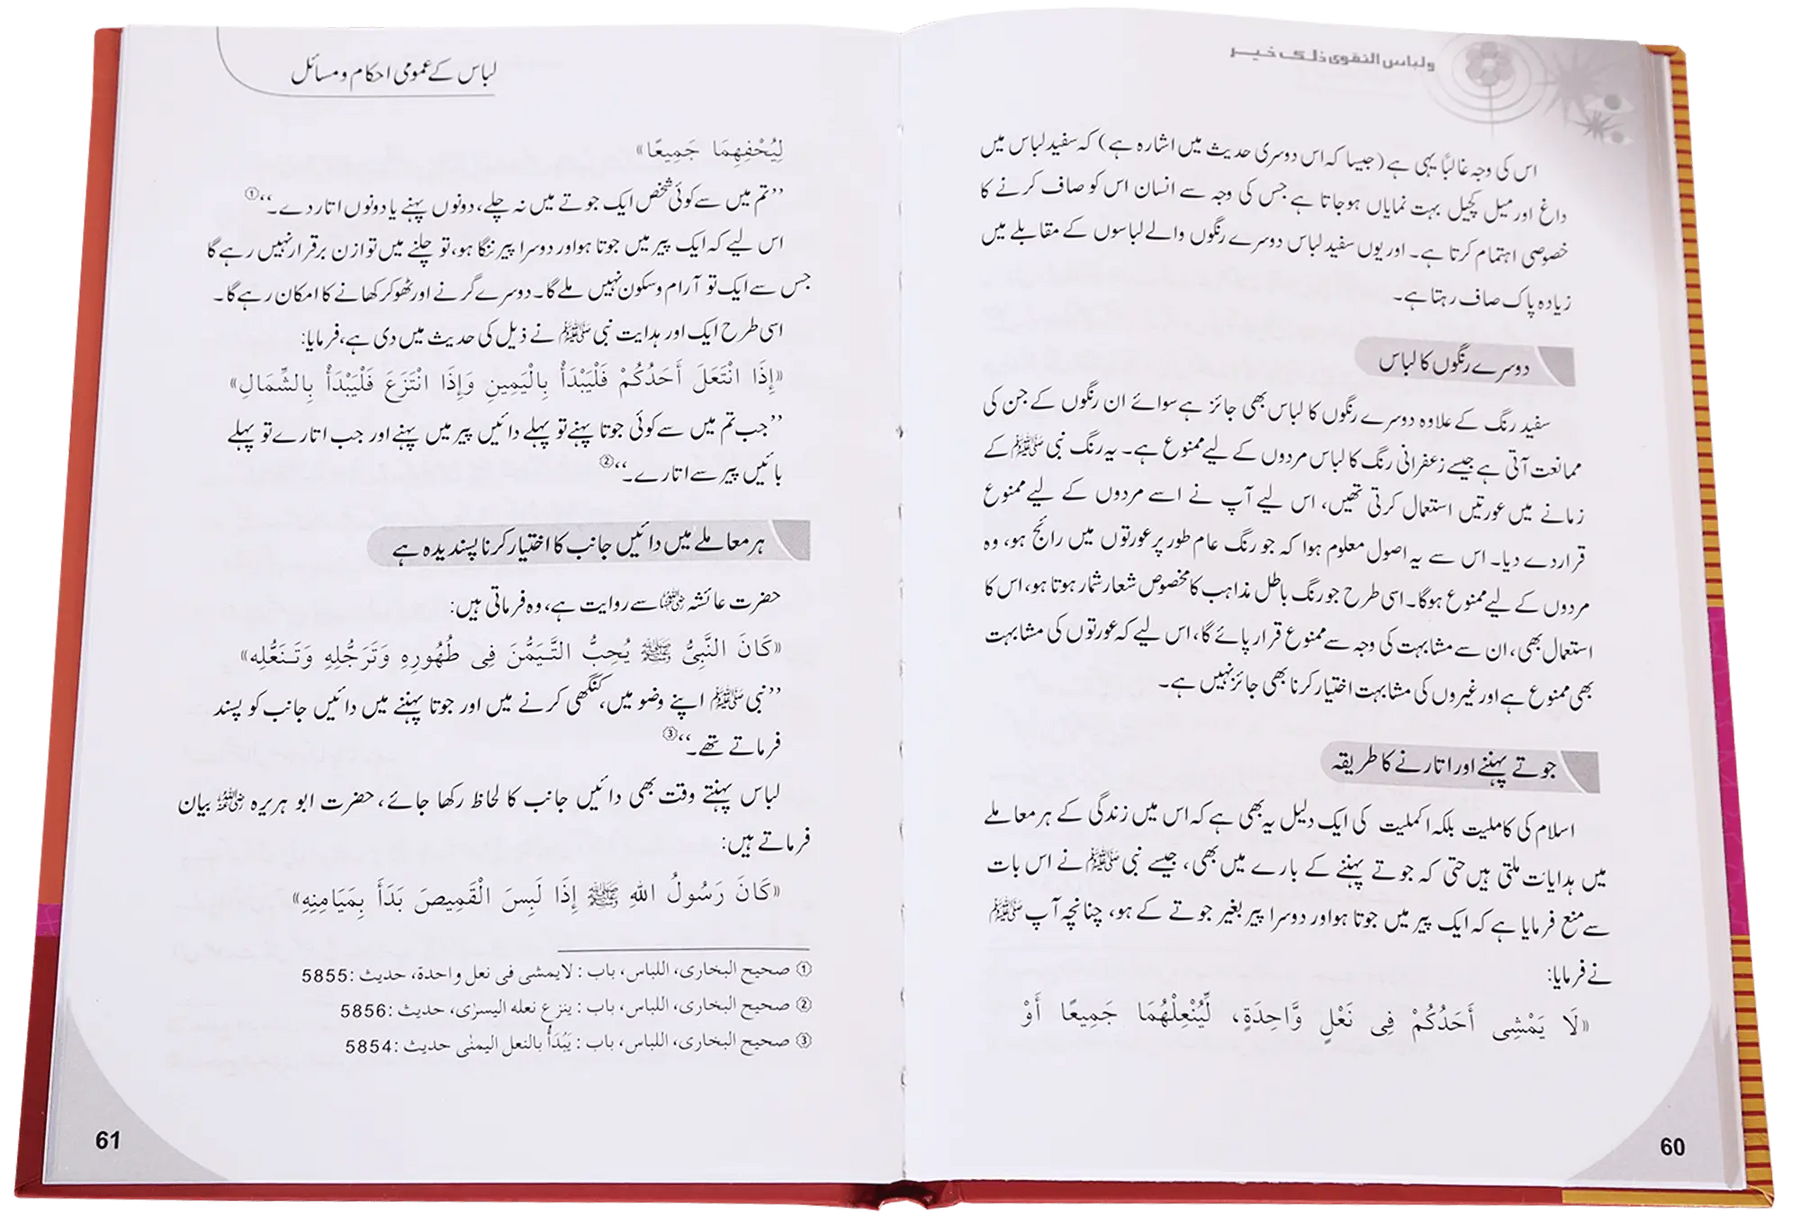 ولباس التقوى ذلك خير
اس کی وجہ غالباً یہی ہے (جیسا کہ اس دوسری حدیث میں اشارہ ہے) کہ سفید لباس میں
داغ اور میل کچیل بہت نمایاں ہو جاتا ہے جس کی وجہ سے انسان اس کو صاف کرنے کا
خصوصی اہتمام کرتا ہے۔ اور یوں سفید لباس دوسرے رنگوں والے لباسوں کے مقابلے میں
زیادہ پاک صاف رہتا ہے۔
دوسرے رنگوں کا لباس
سفید رنگ کے علاوہ دوسرے رنگوں کا لباس بھی جائز ہے سوائے ان رنگوں کے جن کی
ممانعت آتی ہے جیسے زعفرانی رنگ کا لباس مردوں کے لیے ممنوع ہے۔ یہ رنگ نبی ﷺ کے
زمانے میں عورتیں استعمال کرتی تھیں، اس لیے آپ نے اسے مردوں کے لیے ممنوع
قرار دے دیا۔ اس سے یہ اصول معلوم ہوا کہ جو رنگ عام طور پر عورتوں میں رائج ہو، وہ
مردوں کے لیے ممنوع ہوگا۔ اسی طرح جو رنگ باطل مذاہب کا مخصوص شعار شمار ہوتا ہو، اس کا
استعمال بھی، ان سے مشابہت کی وجہ سے ممنوع قرار پائے گا، اس لیے کہ عورتوں کی مشابہت
بھی ممنوع ہے اور غیروں کی مشابہت اختیار کرنا بھی جائز نہیں ہے۔
جوتے پہننے اور اتارنے کا طریقہ
اسلام کی کاملیت بلکہ اکملیت کی ایک دلیل یہ بھی ہے کہ اس میں زندگی کے ہر معاملے
میں ہدایات ملتی ہیں حتی کہ جوتے پہننے کے بارے میں بھی، جیسے نبی ﷺ نے اس بات
سے منع فرمایا ہے کہ ایک پیر میں جوتا ہو اور دوسرا پیر بغیر جوتے کے ہو، چنانچہ آپ ﷺ
نے فرمایا:
«لَا يَمْشِي أَحَدُكُمْ فِي نَعْلٍ وَّاحِدَةٍ، لِّيُنْعِلْهُمَا جَمِيعًا أَوْ
60
لباس کے عمومی احکام و مسائل
لِيُحْفِهِمَا جَمِيعًا»
’’تم میں سے کوئی شخص ایک جوتے میں نہ چلے، دونوں پہنے یا دونوں اتار دے۔‘‘①
اس لیے کہ ایک پیر میں جوتا ہو اور دوسرا پیر ننگا ہو، تو چلنے میں توازن برقرار نہیں رہے گا
جس سے ایک تو آرام و سکون نہیں ملے گا۔ دوسرے گرنے اور ٹھوکر کھانے کا امکان رہے گا۔
اسی طرح ایک اور ہدایت نبی ﷺ نے ذیل کی حدیث میں دی ہے، فرمایا:
«إِذَا انْتَعَلَ أَحَدُكُمْ فَلْيَبْدَأْ بِالْيَمِينِ وَإِذَا انْتَزَعَ فَلْيَبْدَأْ بِالشِّمَالِ»
’’جب تم میں سے کوئی جوتا پہنے تو پہلے دائیں پیر میں پہنے اور جب اتارے تو پہلے
بائیں پیر سے اتارے۔‘‘②
ہر معاملے میں دائیں جانب کا اختیار کرنا پسندیدہ ہے
حضرت عائشہ رضی اللہ عنہا سے روایت ہے، وہ فرماتی ہیں:
«كَانَ النَّبِيُّ ﷺ يُحِبُّ التَّيَمُّنَ فِي طُهُورِهِ وَتَرَجُّلِهِ وَتَنَعُّلِه»
’’نبی ﷺ اپنے وضو میں، کنگھی کرنے میں اور جوتا پہننے میں دائیں جانب کو پسند
فرماتے تھے۔‘‘③
لباس پہنتے وقت بھی دائیں جانب کا لحاظ رکھا جائے، حضرت ابو ہریرہ رضی اللہ عنہ بیان
فرماتے ہیں:
«كَانَ رَسُولُ اللهِ ﷺ إِذَا لَبِسَ الْقَمِيصَ بَدَأَ بِمَيَامِنِهِ»
① صحیح البخاری، اللباس، باب : لایمشی فی نعل واحدة، حدیث :5855
② صحیح البخاری، اللباس، باب : ینزع نعله الیسرٰی، حدیث :5856
③ صحیح البخاری، اللباس، باب : یَبْدَأُ بالنعل الیمنٰی حدیث :5854
61